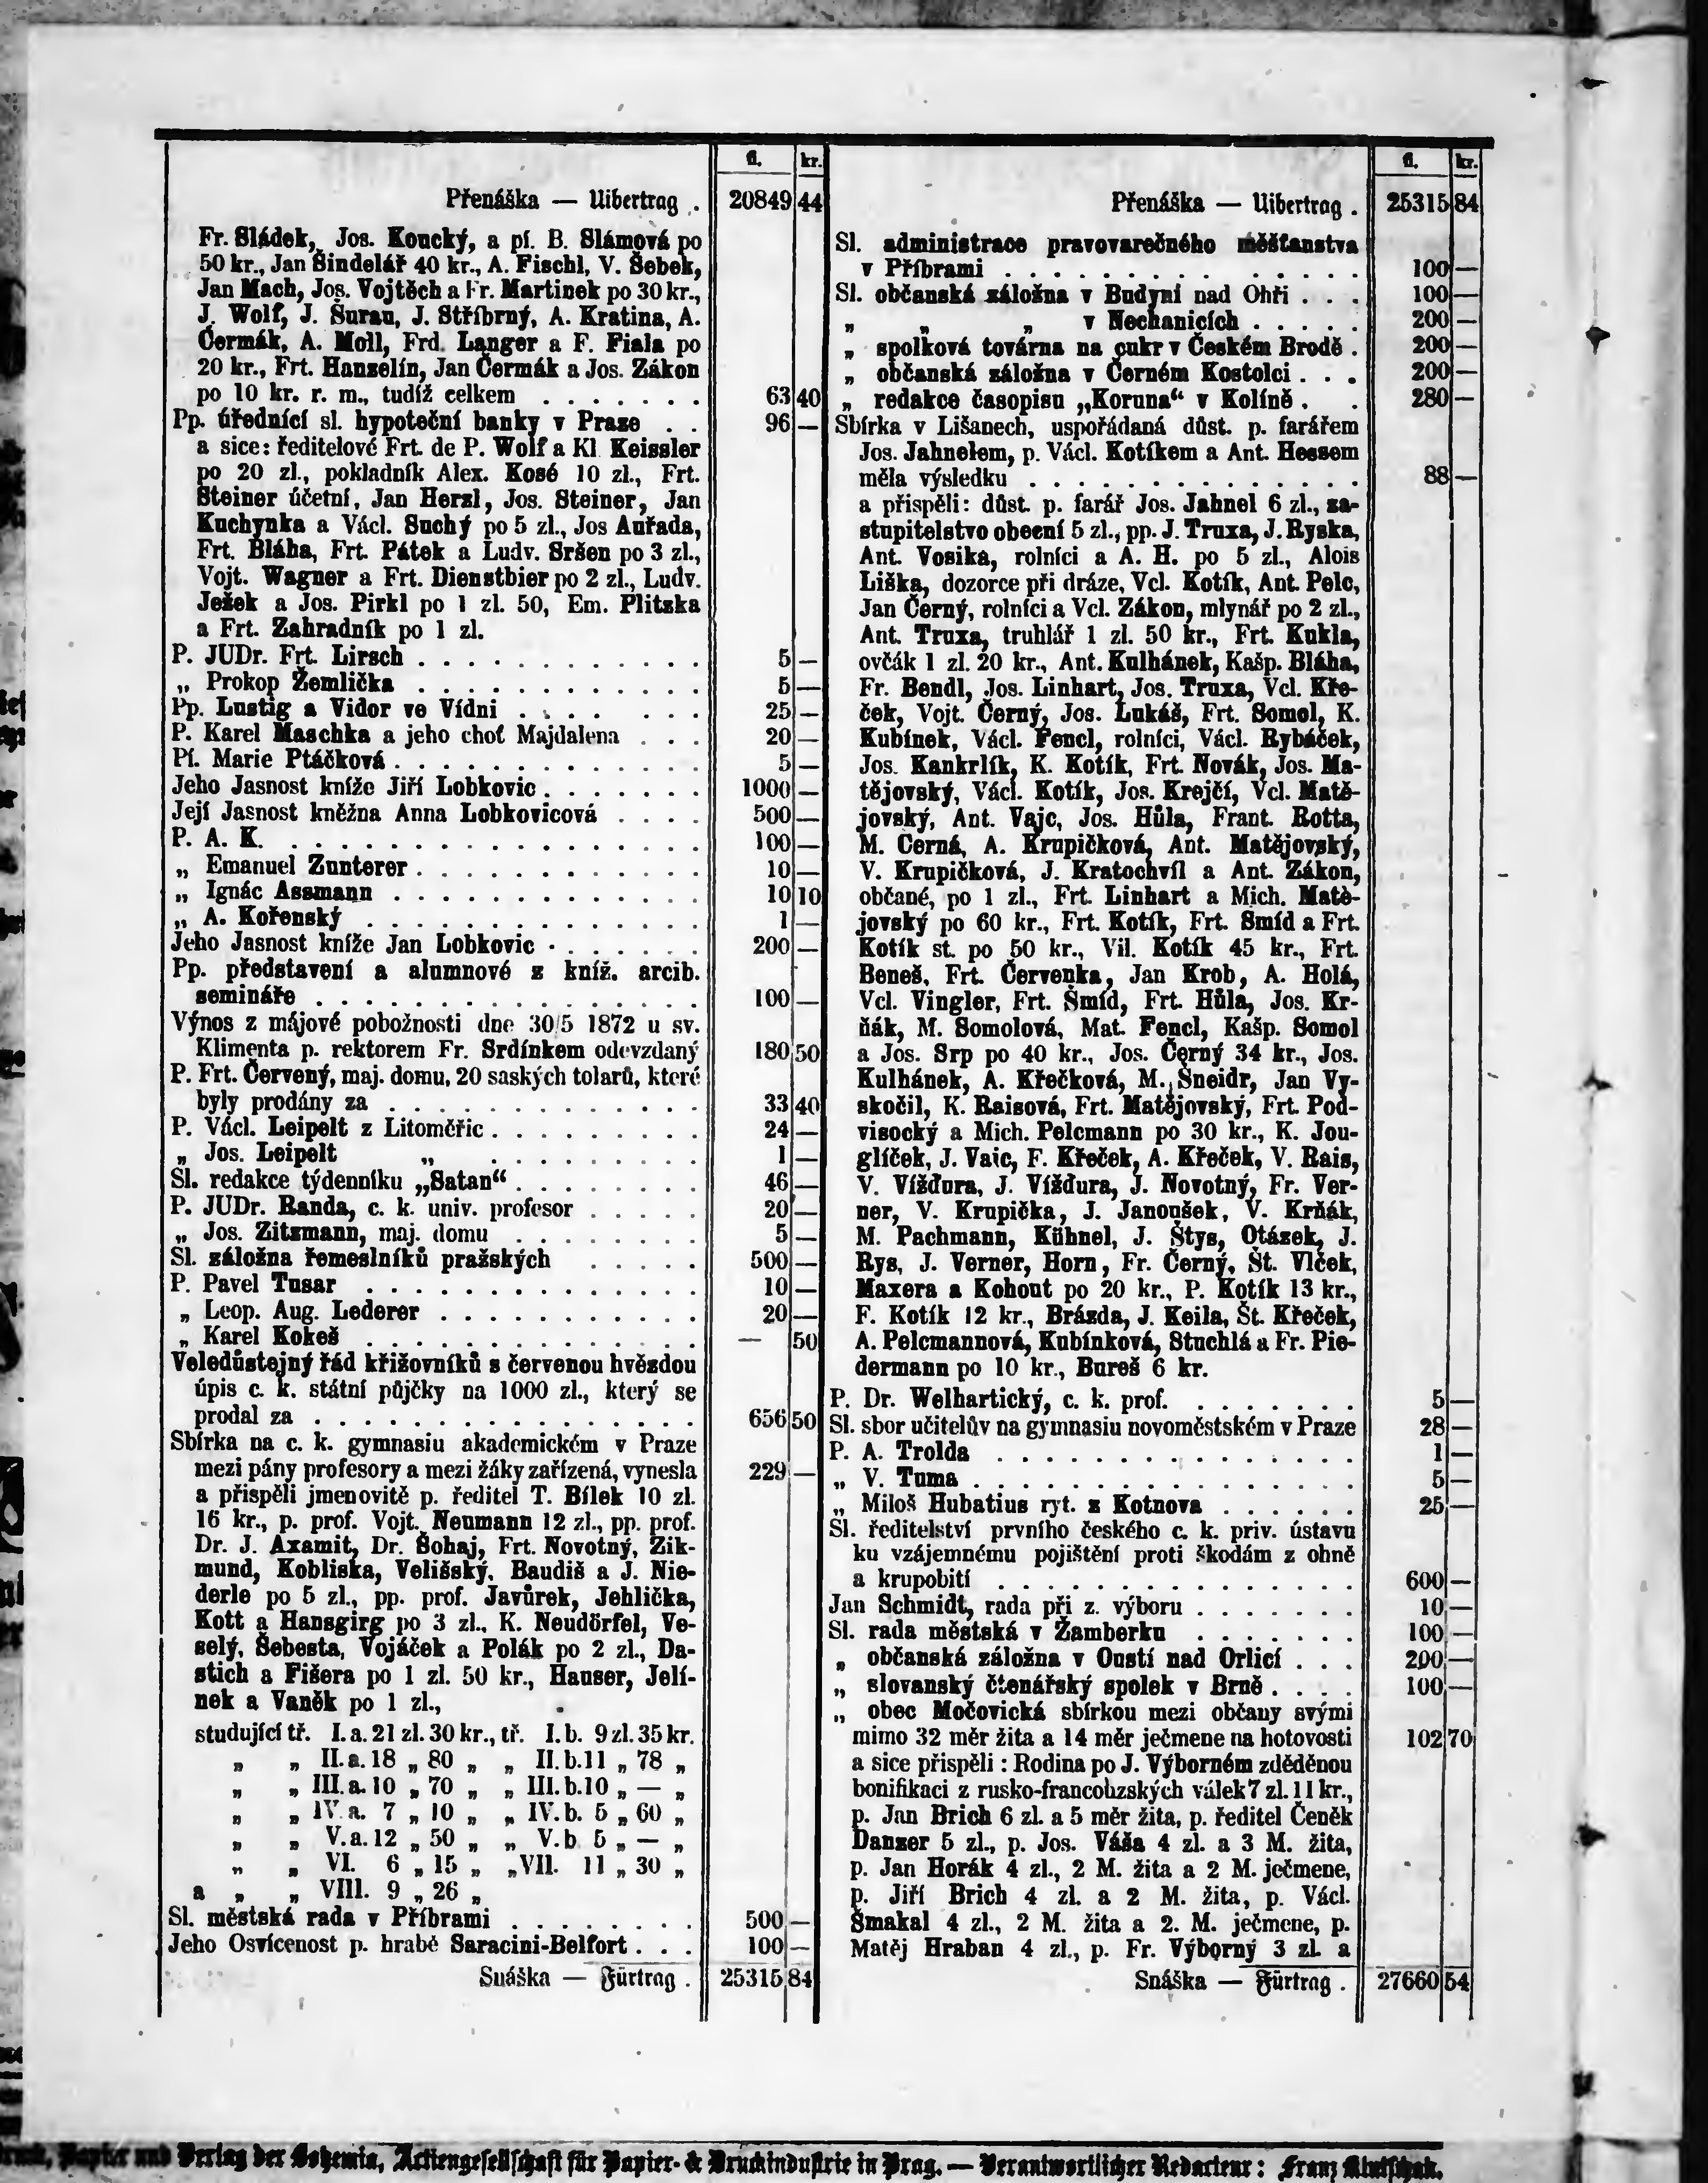 fl. kr.
Přenáška — Uibertrag . 20849 44
Fr. Sládek, Jos. Koucký, a pí. B. Slámová po
50 kr., Jan Šindelář 40 kr., A. Fischl, V. Šebek,
Jan Mach, Jos. Vojtěch a Fr. Martinek po 30 kr.,
J. Wolf, J. Šurau, J. Stříbrný, A. Kratina, A.
Čermák, A. Moll, Frd. Langer a F. Fiala po
20 kr., Frt. Hanzelín, Jan Čermák a Jos. Zákon
po 10 kr. r. m., tudíž celkem . . . . . . . 63 40
Pp. úředníci sl. hypoteční banky v Praze . . 96 —
a sice: ředitelové Frt. de P. Wolf a Kl Keissler
po 20 zl., pokladník Alex. Kosé 10 zl., Frt.
Steiner účetní, Jan Herzl, Jos. Steiner, Jan
Kuchynka a Václ. Suchý po 5 zl., Jos Auřada,
Frt. Bláha, Frt. Pátek a Ludv. Sršen po 3 zl.,
Vojt. Wagner a Frt. Dienstbier po 2 zl., Ludv.
Ježek a Jos. Pirkl po 1 zl. 50, Em. Plitzka
a Frt. Zahradník po 1 zl.
P. JUDr. Frt. Lirsch . . . . . . . . . . . . 5 —
„ Prokop Žemlička . . . . . . . . . . . . 5 —
Pp. Lustig a Vidor ve Vídni . . . . . . . 25 —
P. Karel Maschka a jeho choť Majdalena . . . 20 —
Pí. Marie Ptáčková . . . . . . . . . . . . . 5 —
Jeho Jasnost kníže Jiří Lobkovic . . . . . . . 1000 —
Její Jasnost kněžna Anna Lobkovicová . . . . 500 —
P. A. K. . . . . . . . . . . . . . . . . . 100 —
„ Emanuel Zunterer . . . . . . . . . . . . 10 —
„ Ignác Assmann . . . . . . . . . . . . . 10 10
„ A. Kořenský . . . . . . . . . . . . . . 1 —
Jeho Jasnost kníže Jan Lobkovic . . . . . . . 200 —
Pp. představení a alumnové z kníž. arcib.
semináře . . . . . . . . . . . . . . . . 100 —
Výnos z májové pobožnosti dne 30/5 1872 u sv.
Klimenta p. rektorem Fr. Srdínkem odevzdaný 180 50
P. Frt. Červený, maj. domu, 20 saských tolarů, které
byly prodány za . . . . . . . . . . . . . 33 40
P. Václ. Leipelt z Litoměřic . . . . . . . . . 24 —
„ Jos. Leipelt „ . . . . . . . . . 1 —
Sl. redakce týdenníku „Satan“ . . . . . . . . 46 —
P. JUDr. Randa, c. k. univ. profesor . . . . . 20 —
„ Jos. Zitzmann, maj. domu . . . . . . . . 5 —
Sl. záložna řemeslníků pražských . . . . . 500 —
P. Pavel Tusar . . . . . . . . . . . . . . 10 —
„ Leop. Aug. Lederer . . . . . . . . . . . 20 —
„ Karel Kokeš . . . . . . . . . . . . . . — 50
Veledůstejný řád křižovníků s červenou hvězdou
úpis c. k. státní půjčky na 1000 zl., který se
prodal za . . . . . . . . . . . . . . . . 656 50
Sbírka na c. k. gymnasiu akademickém v Praze
mezi pány profesory a mezi žáky zařízená, vynesla 229 —
a přispěli jmenovitě p. ředitel T. Bílek 10 zl.
16 kr., p. prof. Vojt. Neumann 12 zl., pp. prof.
Dr. J. Axamit, Dr. Šohaj, Frt. Novotný, Zik-
mund, Kobliska, Velišský, Baudiš a J. Nie-
derle po 5 zl., pp. prof. Javůrek, Jehlička,
Kott a Hansgirg po 3 zl., K. Neudörfel, Ve-
selý, Šebesta, Vojáček a Polák po 2 zl., Da-
stich a Fišera po 1 zl. 50 kr., Hauser, Jelí-
nek a Vaněk po 1 zl.,
studující tř. I. a. 21 zl. 30 kr., tř. I. b. 9 zl. 35 kr.
„ „ II. a. 18 „ 80 „ „ II. b. 11 „ 78 „
„ „ III. a. 10 „ 70 „ „ III. b. 10 „ — „
„ „ IV. a. 7 „ 10 „ „ IV. b. 5 „ 60 „
„ „ V. a. 12 „ 50 „ „ V. b 5 „ — „
„ „ VI. 6 „ 15 „ „ VII. 11 „ 30 „
a „ „ VIII. 9 „ 26 „
Sl. městská rada v Příbrami . . . . . . . . 500 —
Jeho Osvícenost p. hrabě Saracini-Belfort . . . 100 —
Snáška — Fürtrag . 25315 84
fl. kr.
Přenáška — Uibertrag . 25315 84
Sl. administrace pravovarečného měšťanstva
v Příbrami . . . . . . . . . . . . . . . 100 —
Sl. občanská záložna v Budyni nad Ohří . . . 100 —
„ „ „ v Nechanicích . . . . . 200 —
„ spolková továrna na cukr v Českém Brodě . 200 —
„ občanská záložna v Černém Kostolci . . . 200 —
„ redakce časopisu „Koruna“ v Kolíně . . 280 —
Sbírka v Lišanech, uspořádaná důst. p. farářem
Jos. Jahnelem, p. Václ. Kotíkem a Ant. Hessem
měla výsledku . . . . . . . . . . . . . . 88 —
a přispěli: důst. p. farář Jos. Jahnel 6 zl., za-
stupitelstvo obecní 5 zl., pp. J. Truxa, J. Ryska,
Ant. Vosika, rolníci a A. H. po 5 zl., Alois
Liška, dozorce při dráze, Vcl. Kotík, Ant. Pelc,
Jan Černý, rolníci a Vcl. Zákon, mlynář po 2 zl.,
Ant. Truxa, truhlář 1 zl. 50 kr., Frt. Kukla,
ovčák 1 zl. 20 kr., Ant. Kulhánek, Kašp. Bláha,
Fr. Bendl, Jos. Linhart, Jos. Truxa, Vcl. Kře-
ček, Vojt. Černý, Jos. Lukáš, Frt. Somol, K.
Kubínek, Václ. Fencl, rolníci, Václ. Rybáček,
Jos. Kankrlík, K. Kotík, Frt. Novák, Jos. Ma-
tějovský, Václ. Kotík, Jos. Krejčí, Vcl. Matě-
jovský, Ant. Vajc, Jos. Hůla, Frant. Rotta,
M. Černá, A. Krupičková, Ant. Matějovský,
V. Krupičková, J. Kratochvíl a Ant. Zákon,
občané, po 1 zl., Frt. Linhart a Mich. Matě-
jovský po 60 kr., Frt. Kotík, Frt. Šmíd a Frt.
Kotík st. po 50 kr., Vil. Kotík 45 kr., Frt.
Beneš, Frt. Červenka, Jan Krob, A. Holá,
Vcl. Vingler, Frt. Šmíd, Frt. Hůla, Jos. Kr-
ňák, M. Somolová, Mat. Fencl, Kašp. Somol
a Jos. Srp po 40 kr., Jos. Černý 34 kr., Jos.
Kulhánek, A. Křečková, M. Šneidr, Jan Vy-
skočil, K. Raisová, Frt. Matějovský, Frt. Pod-
visocký a Mich. Pelcmann po 30 kr., K. Jou-
glíček, J. Vaic, F. Křeček, A. Křeček, V. Rais,
V. Vížďura, J. Vížďura, J. Novotný, Fr. Ver-
ner, V. Krupička, J. Janoušek, V. Krňák,
M. Pachmann, Kühnel, J. Štys, Otázek, J.
Rys, J. Verner, Horn, Fr. Černý, Št. Vlček,
Maxera a Kohout po 20 kr., P. Kotík 13 kr.,
F. Kotík 12 kr., Brázda, J. Keila, Št. Křeček,
A. Pelcmannová, Kubínková, Stuchlá a Fr. Pie-
dermann po 10 kr., Bureš 6 kr.
P. Dr. Welhartický, c. k. prof. . . . . . . . . 5 —
Sl. sbor učitelův na gymnasiu novoměstském v Praze 28 —
P. A. Trolda . . . . . . . . . . . . . . . 1 —
„ V. Tuma . . . . . . . . . . . . . . . . 5 —
„ Miloš Hubatius ryt. z Kotnova . . . . . . 25 —
Sl. ředitelství prvního českého c. k. priv. ústavu
ku vzájemnému pojištění proti škodám z ohně
a krupobití . . . . . . . . . . . . . . . 600 —
Jan Schmidt, rada při z. výboru . . . . . . . 10 —
Sl. rada městská v Žamberku . . . . . . . 100 —
„ občanská záložna v Oustí nad Orlicí . . . 200 —
„ slovanský čtenářský spolek v Brně . . . . 100 —
„ obec Močovická sbírkou mezi občany svými
mimo 32 měr žita a 14 měr ječmene na hotovosti 102 70
a sice přispěli : Rodina po J. Výborném zděděnou
bonifikaci z rusko-francouzských válek 7 zl. 11 kr.,
p. Jan Brich 6 zl. a 5 měr žita, p. ředitel Čeněk
Danzer 5 zl., p. Jos. Váša 4 zl. a 3 M. žita,
p. Jan Horák 4 zl., 2 M. žita a 2 M. ječmene,
p. Jiří Brich 4 zl. a 2 M. žita, p. Václ.
Šmakal 4 zl., 2 M. žita a 2. M. ječmene, p.
Matěj Hraban 4 zl., p. Fr. Výborný 3 zl. a
Snáška — Fürtrag . 27660 54
Papier und Verlag der Bohemia, Actiengesellschaft für Papier- & Druckindustrie in Prag. — Verantwortlicher Redacteur: Franz Klutschak.